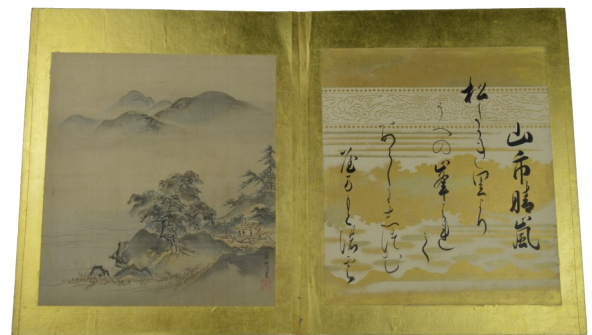 山市晴嵐
松たかき里より
うへの峯はれて
あらしにしつむ
やまもとの雲